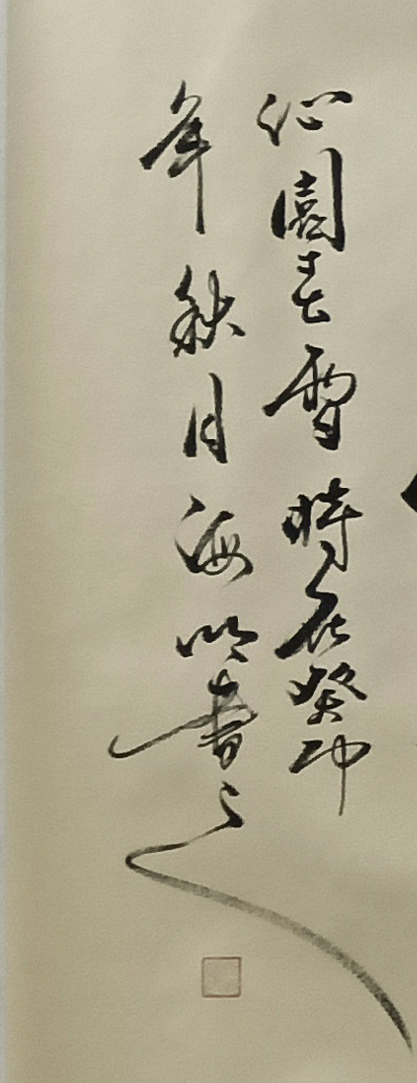 沁園春雪時在癸卯
年秋月海明書之